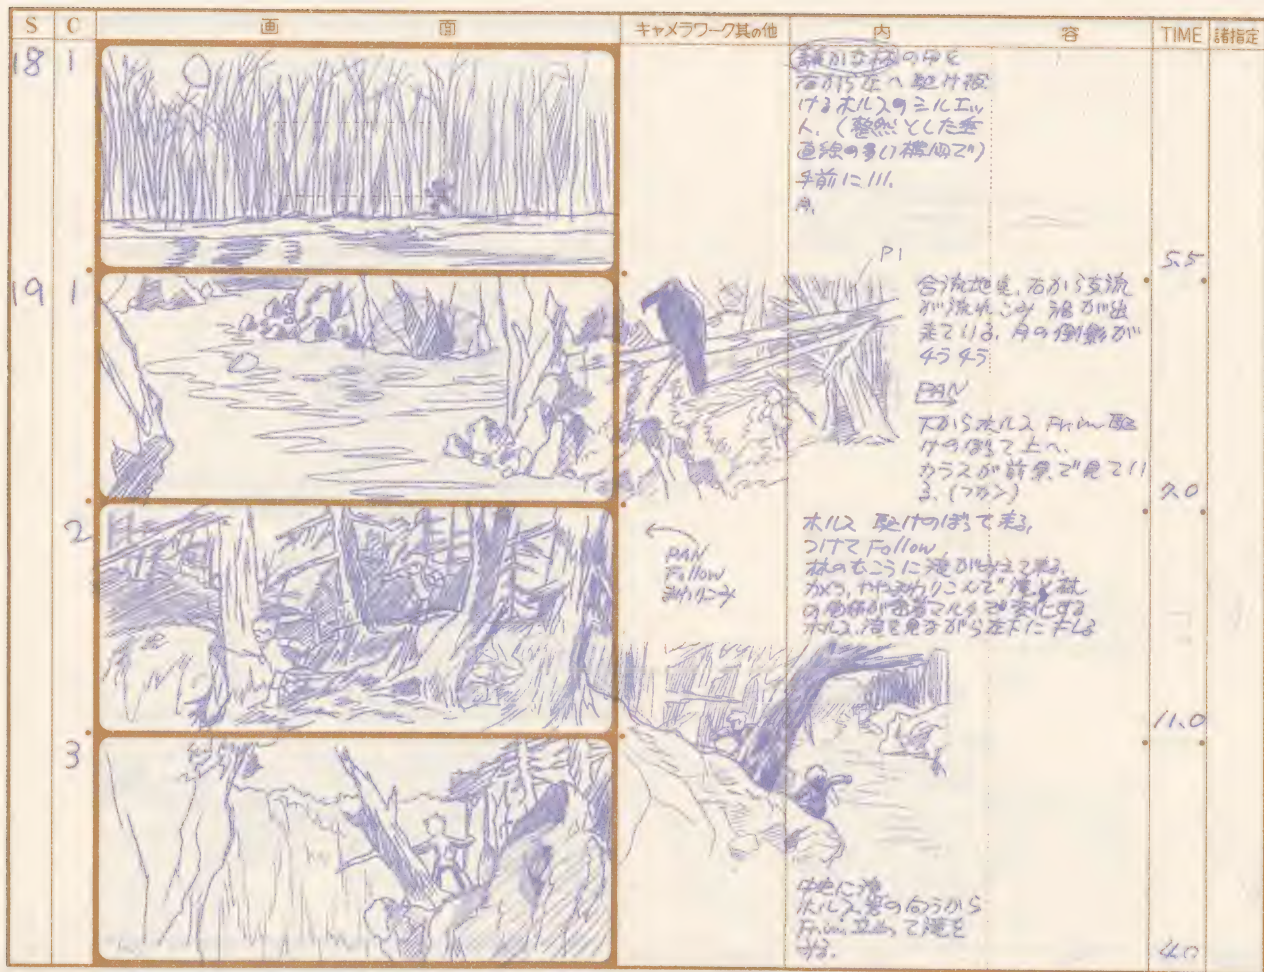 S C 画面 キャメラワーク其の他 内容 TIME 諸指定
18 1
静かな林の中を
右から左へ駆け抜
けるホルスのシルエッ
ト。(整然とした垂
直線の多い構図で)
手前に川。
月。
5.5
19 1
P1
合流地点、右から支流
が流れこみ渦が出
来ている。月の倒影が
PAN
下からホルス Fr.in 駆
けのぼって上へ。
カラスが前景で見てい
る。(フカン)
2
PAN
Follow
まわりこみ
ホルス 駆けのぼって来る。
つけて Follow
林のむこうに滝が
ややまわりこんで
ホルス、滝を見ながら左下に
11.0
3
中央に滝
ホルス、岩の向うから
Fr.in. て滝を
4.0